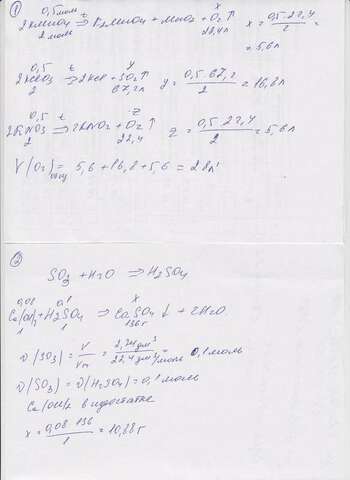 ① 0,5 моль x
2KMnO4 t⇒ K2MnO4 + MnO2 + O2↑ x = 0,5·22,4 / 2 =
2 моль 22,4 л = 5,6 л
0,5 y
2KClO3 t⇒ 2KCl + 3O2↑ y = 0,5·67,2 / 2 = 16,8 л
2 67,2 л
0,5 z
2KNO3 t⇒ 2KNO2 + O2↑ z = 0,5·22,4 / 2 = 5,6 л
2 22,4
V(O2)общ = 5,6 + 16,8 + 5,6 = 28 л
②
SO3 + H2O ⇒ H2SO4
0,08 0,1 x
Ca(OH)2 + H2SO4 ⇒ CaSO4↓ + 2H2O
1 1 136 г
υ(SO3) = V / Vm = 2,24 дм³ / 22,4 дм³/моль = 0,1 моль
υ(SO3) = υ(H2SO4) = 0,1 моль
Ca(OH)2 в недостатке
x = 0,08·136 / 1 = 10,88 г